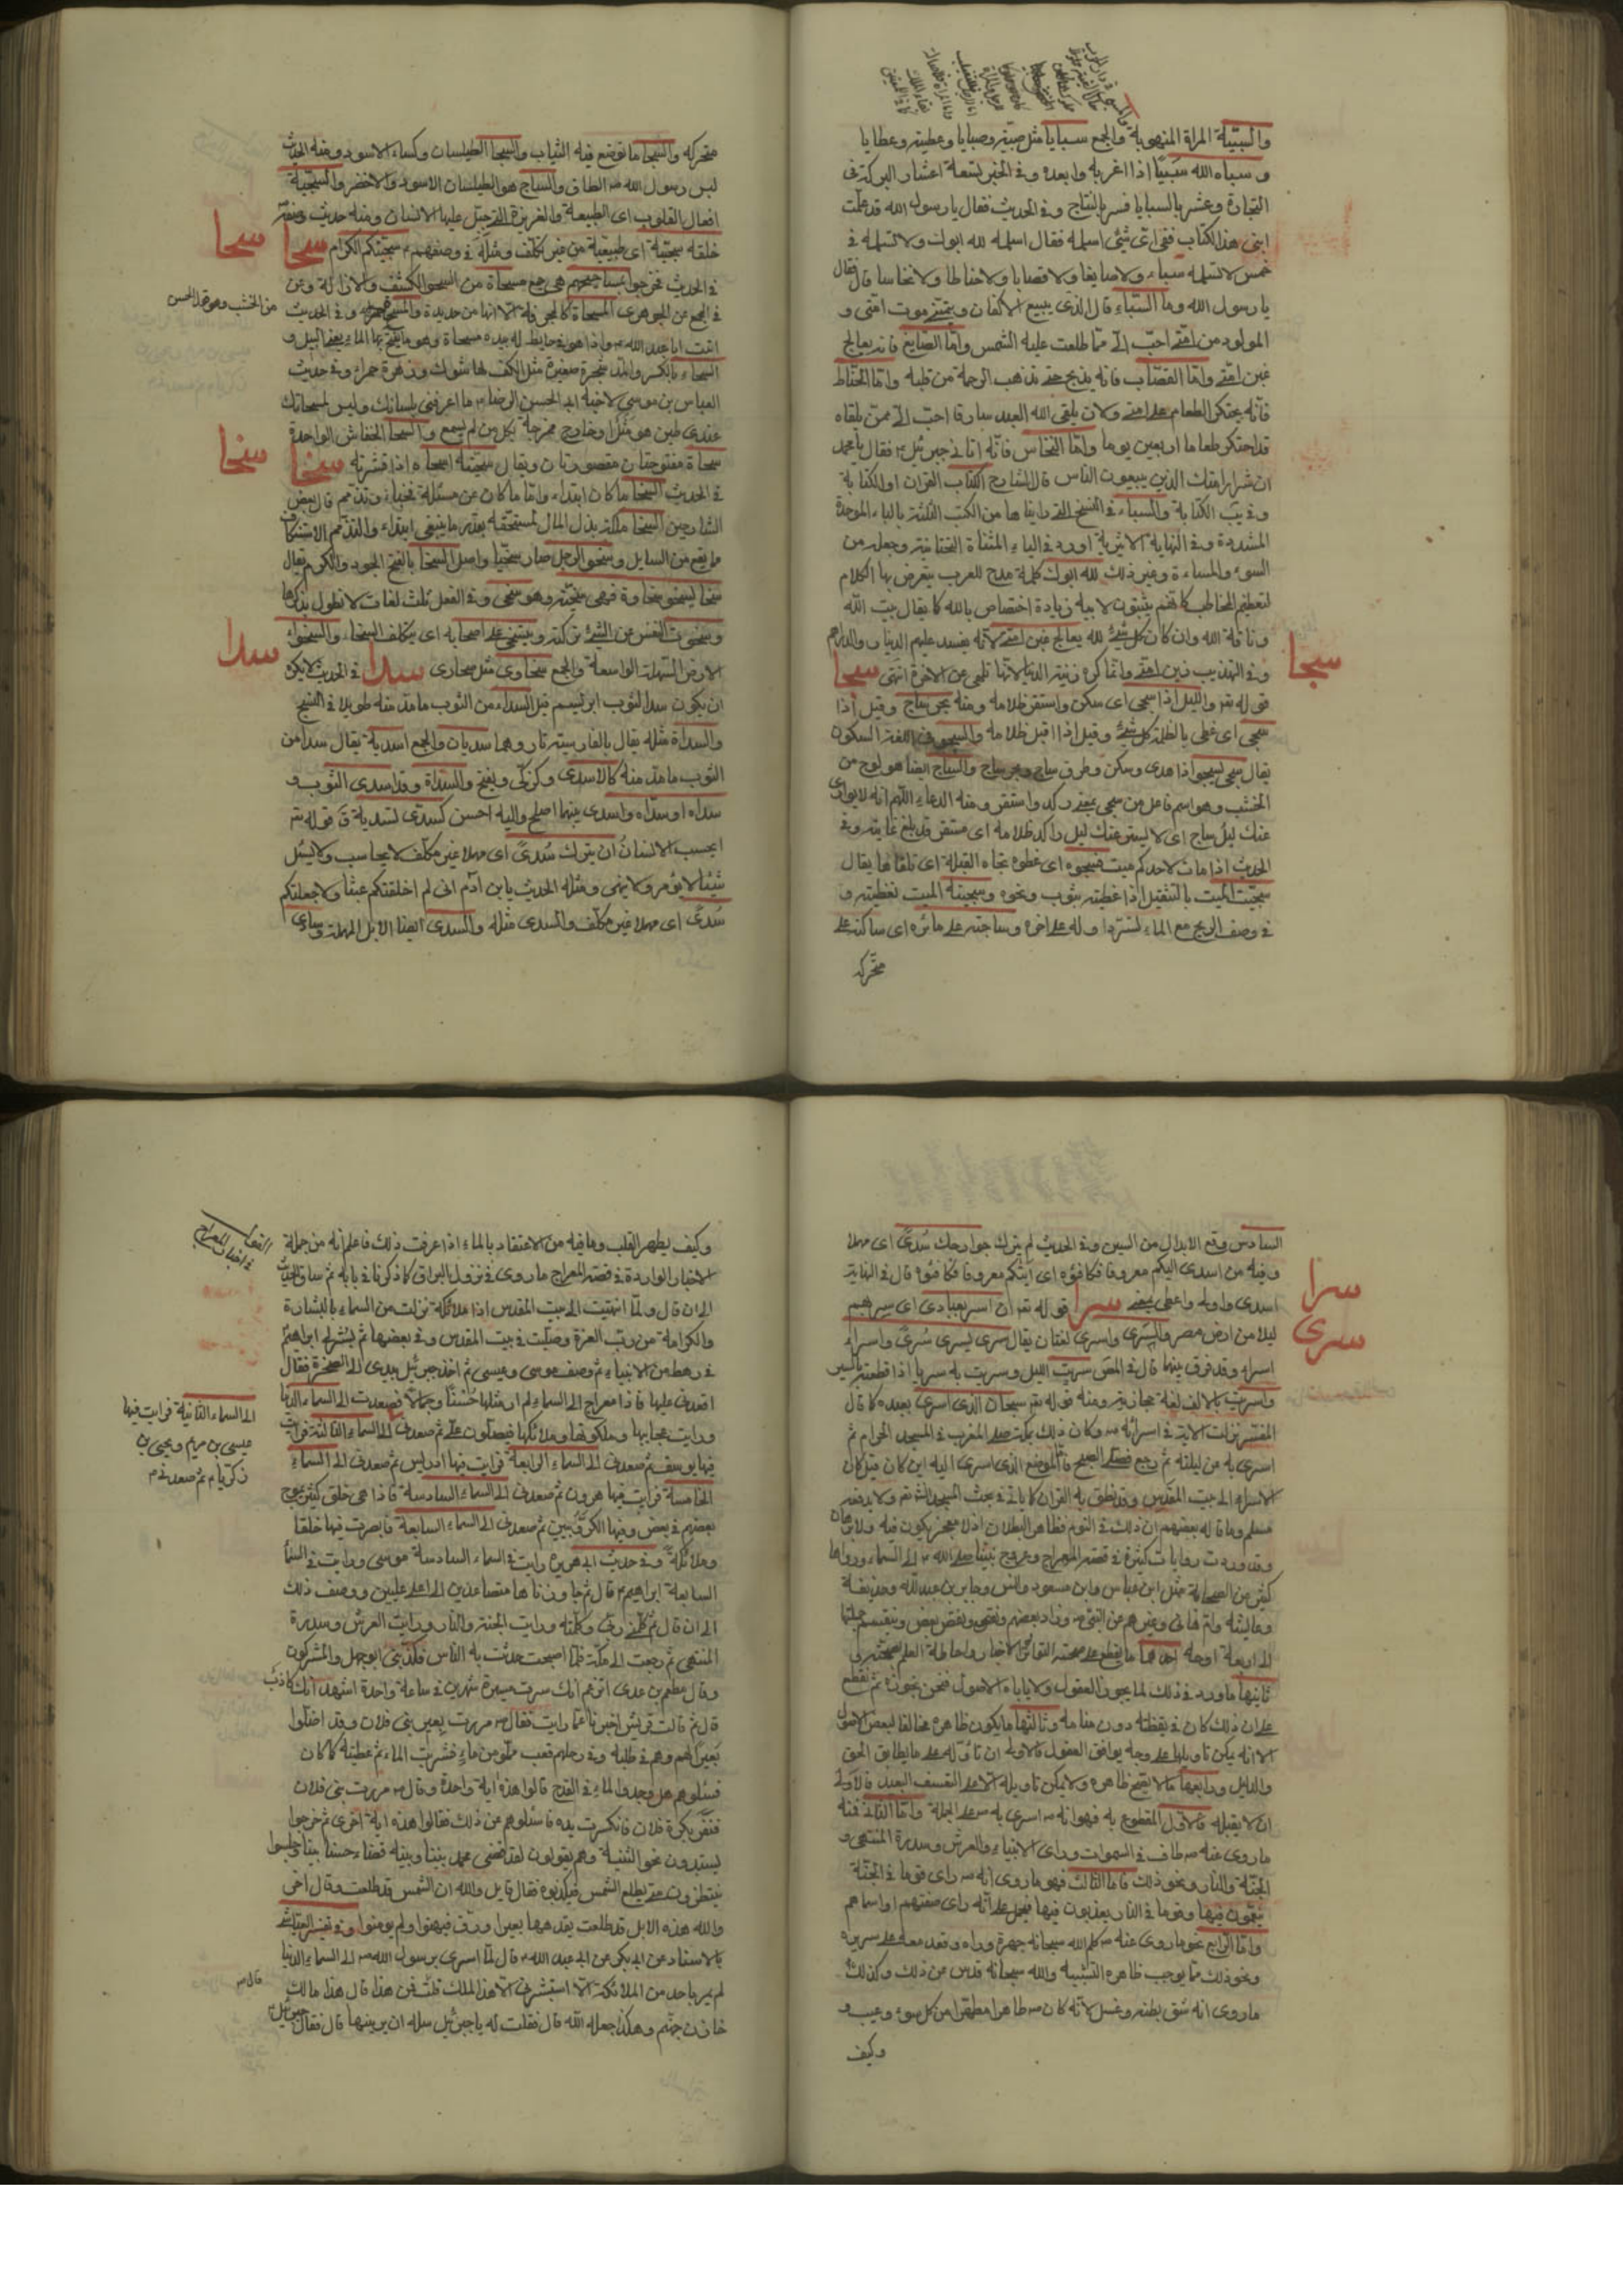 والسبيّة المراة المنهوبة والجمع سبايا مثل صبيّة وصبايا وعطية وعطايا
و سباه الله سبيًا اذا اغربه وابعده وفى الخبر تسعة اعشار البركة فى
التجارة وعشر بالسبايا فسر بالنتاج وفى الحديث فقال يا رسول الله قد علّمت
ابنى هذا الكتاب ففى اى شئ اسلمه فقال اسلمه لله ابوك ولا تسلمه فى
خمس لا تسلمه سباء ولا صايغا ولا قصابا ولا حناطا ولا نخاسا قال فقال
يا رسول الله وما السبّاء قال الذى يبيع الاكفان ويتمنى موت امتى و
المولود من امتى احبّ الىّ ممّا طلعت عليه الشمس وامّا الصايغ فانه يعالج
غبن امتى وامّا القصّاب فانه يذبح حتى تذهب الرحمة من قلبه وامّا الحنّاط
فانّه يحتكر الطعام على امتى ولان يلقى الله العبد سارقا احبّ الىّ من ان يلقاه
قد احتكر طعاما اربعين يوما وامّا النخاس فانّه اتانى جبرئيل فقال يا محمد
ان شرار امتك الذين يبيعون الناس قال الشارح الكتاب القران او الكتابة
وقريب الكتابة والسباء فى النسخ التى رايناها من الكتب الثلثة بالباء الموحدة
المشددة وفى النهاية الاثيرية اورده فى الياء المثناة التحتانية وجعله من
السوء والمساءة وغير ذلك لله ابوك كلمة مدح للعرب يتعرض بها الكلام
لتعظيم المخاطب كانهم يثبتون لابيه زيادة اختصاص بالله كما يقال بيت الله
وناقة الله وان كان كل شئ لله يعالج غبن امتى لانه يفسد عليهم الدينار والدراهم
وفى التهذيب زين امتى وانما كره زينة الدنيا لانها تلهى عن الاخرة انتهى سجا
سجا
قوله تعر والليل اذا سجى اى سكن واستقر ظلامه ومنه بحر ساج وقيل اذا
سجى اى غطى بالظلمة كل شئ وقيل اذا اقبل ظلامه والسجو فى اللغة السكون
يقال سجى يسجو اذا هدى وسكن وطرف ساج وبحر ساج والساج ايضا هو لوح من
الخشب وهو اسم فاعل من سجى بمعنى ركد واستقر ومنه الدعاء اللهم انه لا يوارى
عنك ليل ساج اى لا يستر عنك ليل راكد ظلامه اى مستقر قد بلغ غايته وفى
الحديث اذا مات لاحدكم ميت فسجوه اى غطوه تجاه القبلة اى تلقاها يقال
سجيت الميت بالتثقيل اذا غطيته بثوب ونحوه وتسجية الميت تغطيته و
فى وصف الريح مع الماء لترد اوله على اخره وساجيه على مائره اى ساكنه على
متحركه
متحركه والسجا ما توضع فيه الثياب والسجا الطيلسان وكساء الاسود ومنه الحديث
لبس رسول الله ص الطاق والساج هو الطيلسان الاسود والاخضر والسجيّة
افعال القلوب اى الطبيعة والغريزة التى جبل عليها الانسان ومنه حديث
خلقه سجيّة اى طبيعية من غير تكلف ومثله فى وصفهم سجيتكم الكرام سحا
سحا
فى الحديث فخرجوا بمساحيهم هى جمع مسحاة من السحو الكشف والازالة وعن
فى الجمع عن الجوهرى المسحاة كالمجرفة الا انها من حديدة وفى الحديث
من الخشب وهو قد الحسن
اتيت ابا عبد الله واذا هو فى حايط له بيده مسحاة وهو يفتح بها الماء يعنى السيل و
السحاء بالكسر والمد شجرة صغيرة مثل الكف لها شوك وزهرة حمراء وفى حديث
العباس بن موسى لاخيه ابى الحسن الرضا ما اعرفنى بلسانك وليس لمسحاتك
عندى طين هو مثل اوخارج مخرجة لكل من لم يسمع والسحا الخفاش الواحدة
سحاة مفتوحتان مقصورتان ويقال سحيته اسحاه اذا قشرته سخا
سخا
فى الحديث السخا ما كان ابتداء وامّا ما كان عن مسئلة فحياء وتذمم قال بعض
الشارحين السخا ملكة بذل المال لمستحقه بقدر ما ينبغى ابتداء والتذمم الاستنكاف
ما يقع من السايل وسخو الرجل صار سخيا واصل السخا بالفتح الجود والكرم يقال
سخا يسخو سخاوة فهى سخيّة وهو سخى وفى الفعل ثلث لغات لا نطول بذكرها
وسخوت النفس عن الشئ تركته ويتسخى على اصحابه اى يتكلف السخا والسخواء
الارض السهلة الواسعة والجمع سخاوى مثل صحارى سدا فى الحديث لا يكره
سدا
ان يكون سدا الثوب ابريسم قيل السداء من الثوب ما مد منه طويلا فى النسج
والسداة مثله يقال بالفارسية تار وهما سديان والجمع اسدية يقال سدا من
الثوب ما مد منه كالاسدى وكزكّى ويفتح والسداة وقد اسدى الثوب و
سداه او سدّاه واسدى بينهما اصلح واليه احسن كسدى تسدية قَ قوله تعر
ايحسب الانسان ان يترك سُدىً اى مهلا غير مكلّف لا يحاسب ولا يسئل
شيئا لا يؤمر ولا ينهى ومثله الحديث يا بن آدم انى لم اخلقتكم عبثا ولا جعلتكم
سُدىً اى مهلا غير مكلّف والسدى مثاله والسدى ايضا الابل المهملة وساءى
السادس وقع الابدال من السين وفى الحديث لم يترك جوارحك سُدىً اى مهلا
وفيه من اسدى اليكم معروفا فكافئوه اى آتيكم معروفا فكافئوه قال فى النهاية
اسدى واولى واعطى بمعنى سرا قوله تعر ان اسر بعبادى اى سر بهم
سرا
سرى
ليلا من ارض مصر والسَرى واسرى لغتان يقال سرى يسرى سُرىً واسراء
اسراء وقد فرق بينهما قال فى المص سريت الليل وسريت به سريا اذا قطعته بالسير
واسريت بالالف لغة حجازية ومنه قوله تعر سبحان الذى اسرى بعبده كما قال
المفسر نزلت الاية فى اسرائه ص وكان ذلك بمكة صلى المغرب فى المسجد الحرام ثم
اسرى به من ليلته ثم رجع فصلّى الصبح فامّا الموضع الذى اسرى اليه اين كان قيل كان
الاسراء الى بيت المقدس وقد نطق به القران كما ياتى فى بحث المسجد الش تعر ولا يدفعه
مسلم وما قاله بعضهم ان ذلك فى النوم فظاهر البطلان اذ لا معجز يكون فيه ولا برهان
وقد وردت روايات كثيرة فى قصة المعراج وعروج نبينا صلى الله ص الى السماء ورواها
كثير من الصحابة مثل ابن عباس وابن مسعود وانس وجابر بن عبدالله وحذيفة
وعايشة وام هانى وغيرهم من النبى ص وزاد بعضهم ونقص بعض وتنقسم جملتها
الى اربعة اوجه احدها ما يقطع على صحته التواتر الاخبار واحاطة العلم بصحته
ثانيها ما ورد فى ذلك لما يجوز العقول ولا ياباه الاصول فنحن نجوزه ثم نقطع
على ان ذلك كان فى يقظته دون منامه وثالثها ما يكون ظاهره مخالفا لبعض الاصول
الا انه يمكن تاويلها على وجه يوافق العقول فالاولى ان تأوّله على ما يطابق الحق
والدليل ورابعها ما لا يصح ظاهره ولا يمكن تاويله الا على التعسف البعيد فالاولى
ان لا يقبله فالاول المقطوع به فهو انه ص اسرى به ص على الجملة وامّا الثانى فمنه
ما روى عنه ص طاف فى السموات وراى الانبياء والعرش وسدرة المنتهى و
الجنّة والنار ونحو ذلك فامّا الثالث فهو ما روى انه ص راى قوما فى الجنّة
يتنعمون فيها وقوما فى النار يعذبون فيها فيحمل على انّه راى صفتهم او اسماءهم
وامّا الرابع نحو ما روى عنه ص كلم الله سبحانه جهرة وراه وقعد معه على سريره
ونحو ذلك مما يوجب ظاهره التشبيه والله سبحانه قدس عن ذلك وكذلك
ما روى انه شق بطنه وغسل لانّه كان ص طاهرا مطهرا من كل سوء وعيب و
وكيف
وكيف يطهر القلب وما فيه من الاعتقاد بالماء اذا عرفت ذلك فاعلم انه من جملة
الاخبار الواردة فى قصة المعراج ما روى فى نزول البراق كما ذكرنا فى بابه ثم ساق الحديث
الى ان قال ولمّا انتهيت الى بيت المقدس اذا ملائكة نزلت من السماء بالبشارة
والكرامة من رب العزة وصليت فى بيت المقدس وفى بعضها ثم بشر لى ابراهيم
فى رهط من الانبياء ثم وصف موسى وعيسى ثم اخذ جبرئيل بيدى الى الصخرة فقال
اقعدنى عليها فاذا معراج الى السماء لم ار مثلها حُسنًا وجمالا فصعدت الى السماء الدنيا
ورايت عجايبها وملكوتها وملائكها فيسلّمون علىّ ثم صعدنى الى السماء الثالثة فرايت
الى السماء الثانية فرايت فيها
عيسى بن مريم ويحيى بن
زكريا ثم صعدنى م
فيها يوسف ثم صعدنى الى السماء الرابعة فرايت فيها ادريس ثم صعدنى الى السماء
الخامسة فرايت فيها هرون ثم صعدنى الى السماء السادسة فاذا هى خلق كثير يموج
بعضهم فى بعض وفيها الكرّوبيين ثم صعدنى الى السماء السابعة فابصرت فيها خلقا
وملائكة وفى حديث ابى هريرة رايت فى السماء السادسة موسى ورايت فى السماء
السابعة ابراهيم قال ثم جاوزناها متصاعدين الى اعلى عليين ووصف ذلك
الى ان قال ثم كلّمنى ربّى وكلّمته ورايت الجنة والنار ورايت العرش وسدرة
المنتهى ثم رجعت الى مكّة فلمّا اصبحت حدّثت به الناس فكذّبنى ابوجهل والمشركون
وقال مطعم بن عدى اتزعم انك سرت مسيرة شهرين فى ساعة واحدة اشهد انك كاذب
قال ثم قالت قريش اخبرنا عمّا رايت فقال ص مررت بعير بنى فلان وقد اضلّوا
بعيرا لهم وهم فى طلبه وفى رحلهم قعب مملو من ماء فشربت الماء ثم غطيته كما كان
فسئلوهم هل وجدوا الماء فى القدح قالوا هذه آية واحدة وقال ص مررت بنى فلان
فنفر بكرة فلان فانكسرت يده فاسئلوهم عن ذلك فقالوا هذه آية اخرى ثم خرجوا
يستبدون نحو الثنية وهم يقولون لقد قضى محمد بيننا وبينه قضاء حسنا بينا وجلسوا
ينتظرون متى يطلع الشمس فيكذبوه فقال قايل والله ان الشمس قد طلعت وقال اخر
والله هذه الابل قد طلعت يقدمها بعير اورق فبهتوا ولم يؤمنوا وفى تفسير العياشى
بالاسناد عن ابى بكر عن ابى عبد الله قال لمّا اسرى برسول الله ص الى السماء الدنيا
لم يمر باحد من الملائكة الا استبشر الا هذا الملك فمن هذا قال هذا مالك
خازن جهنم وهكذا جعله الله قال فقلت له يا جبرئيل سله ان يرينيها قال فقال جبرئيل